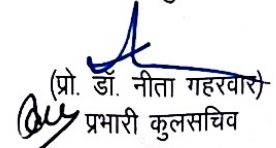 (प्रो. डॉ. नीता गहरवार)
प्रभारी कुलसचिव